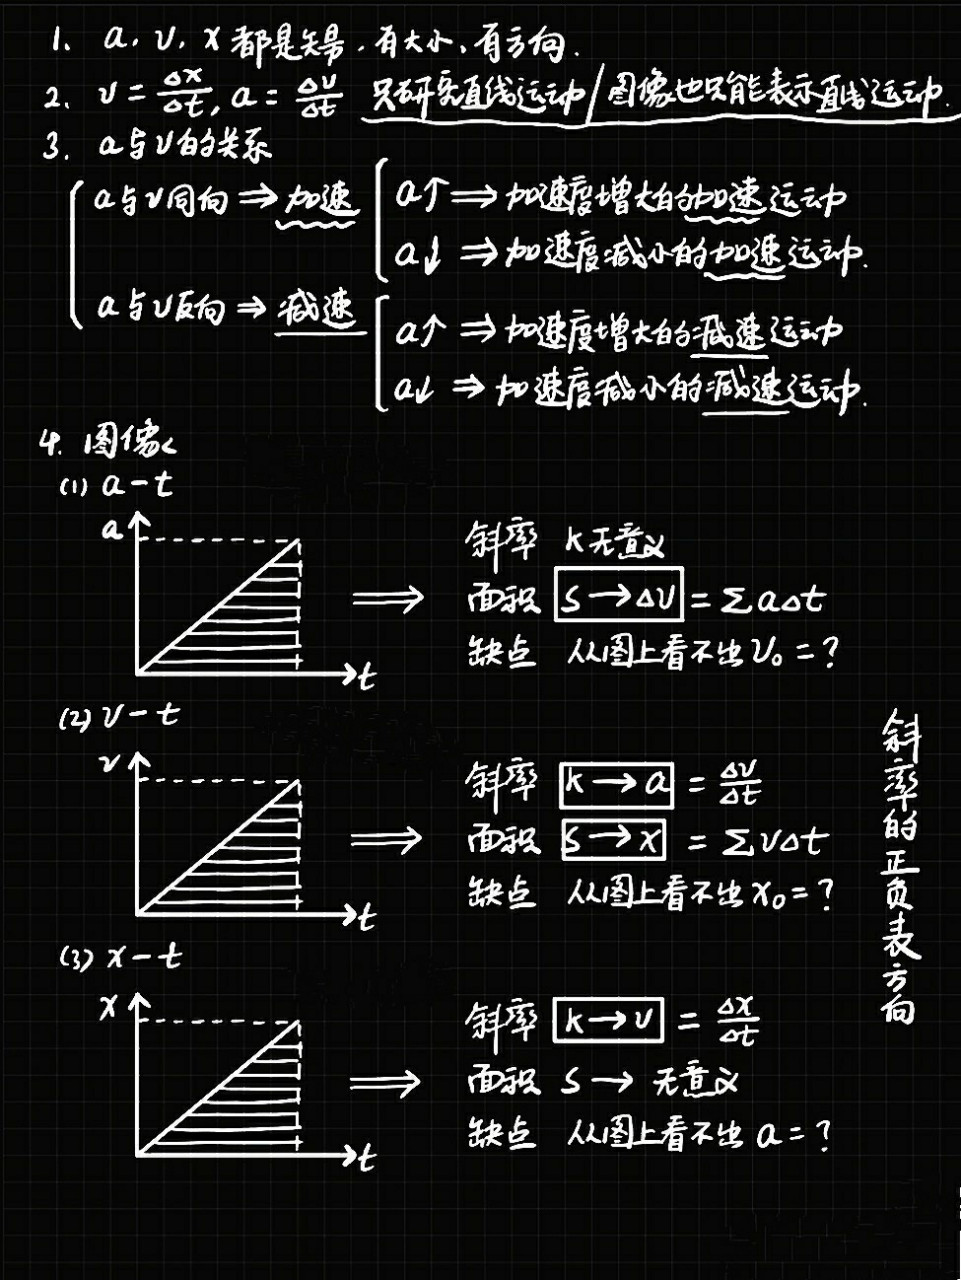 1. a, v, x 都是矢量.有大小、有方向.
2. v = Δx/Δt, a = Δv/Δt 只研究直线运动/图像也只能表示直线运动.
3. a与v的关系
a与v同向⇒加速
a↑⇒加速度增大的加速运动
a↓⇒加速度减小的加速运动.
a与v反向⇒减速
a↑⇒加速度增大的减速运动
a↓⇒加速度减小的减速运动.
4. 图像
(1) a-t
a
t
⟹
斜率 k无意义
面积 S→Δv = Σa Δt
缺点 从图上看不出v₀=?
(2) v-t
v
t
⟹
斜率 k→a = Δv/Δt
面积 S→x = ΣvΔt
缺点 从图上看不出x₀=?
(3) x-t
x
t
⟹
斜率 k→v = Δx/Δt
面积 S→无意义
缺点 从图上看不出a=?
斜率的正负表方向